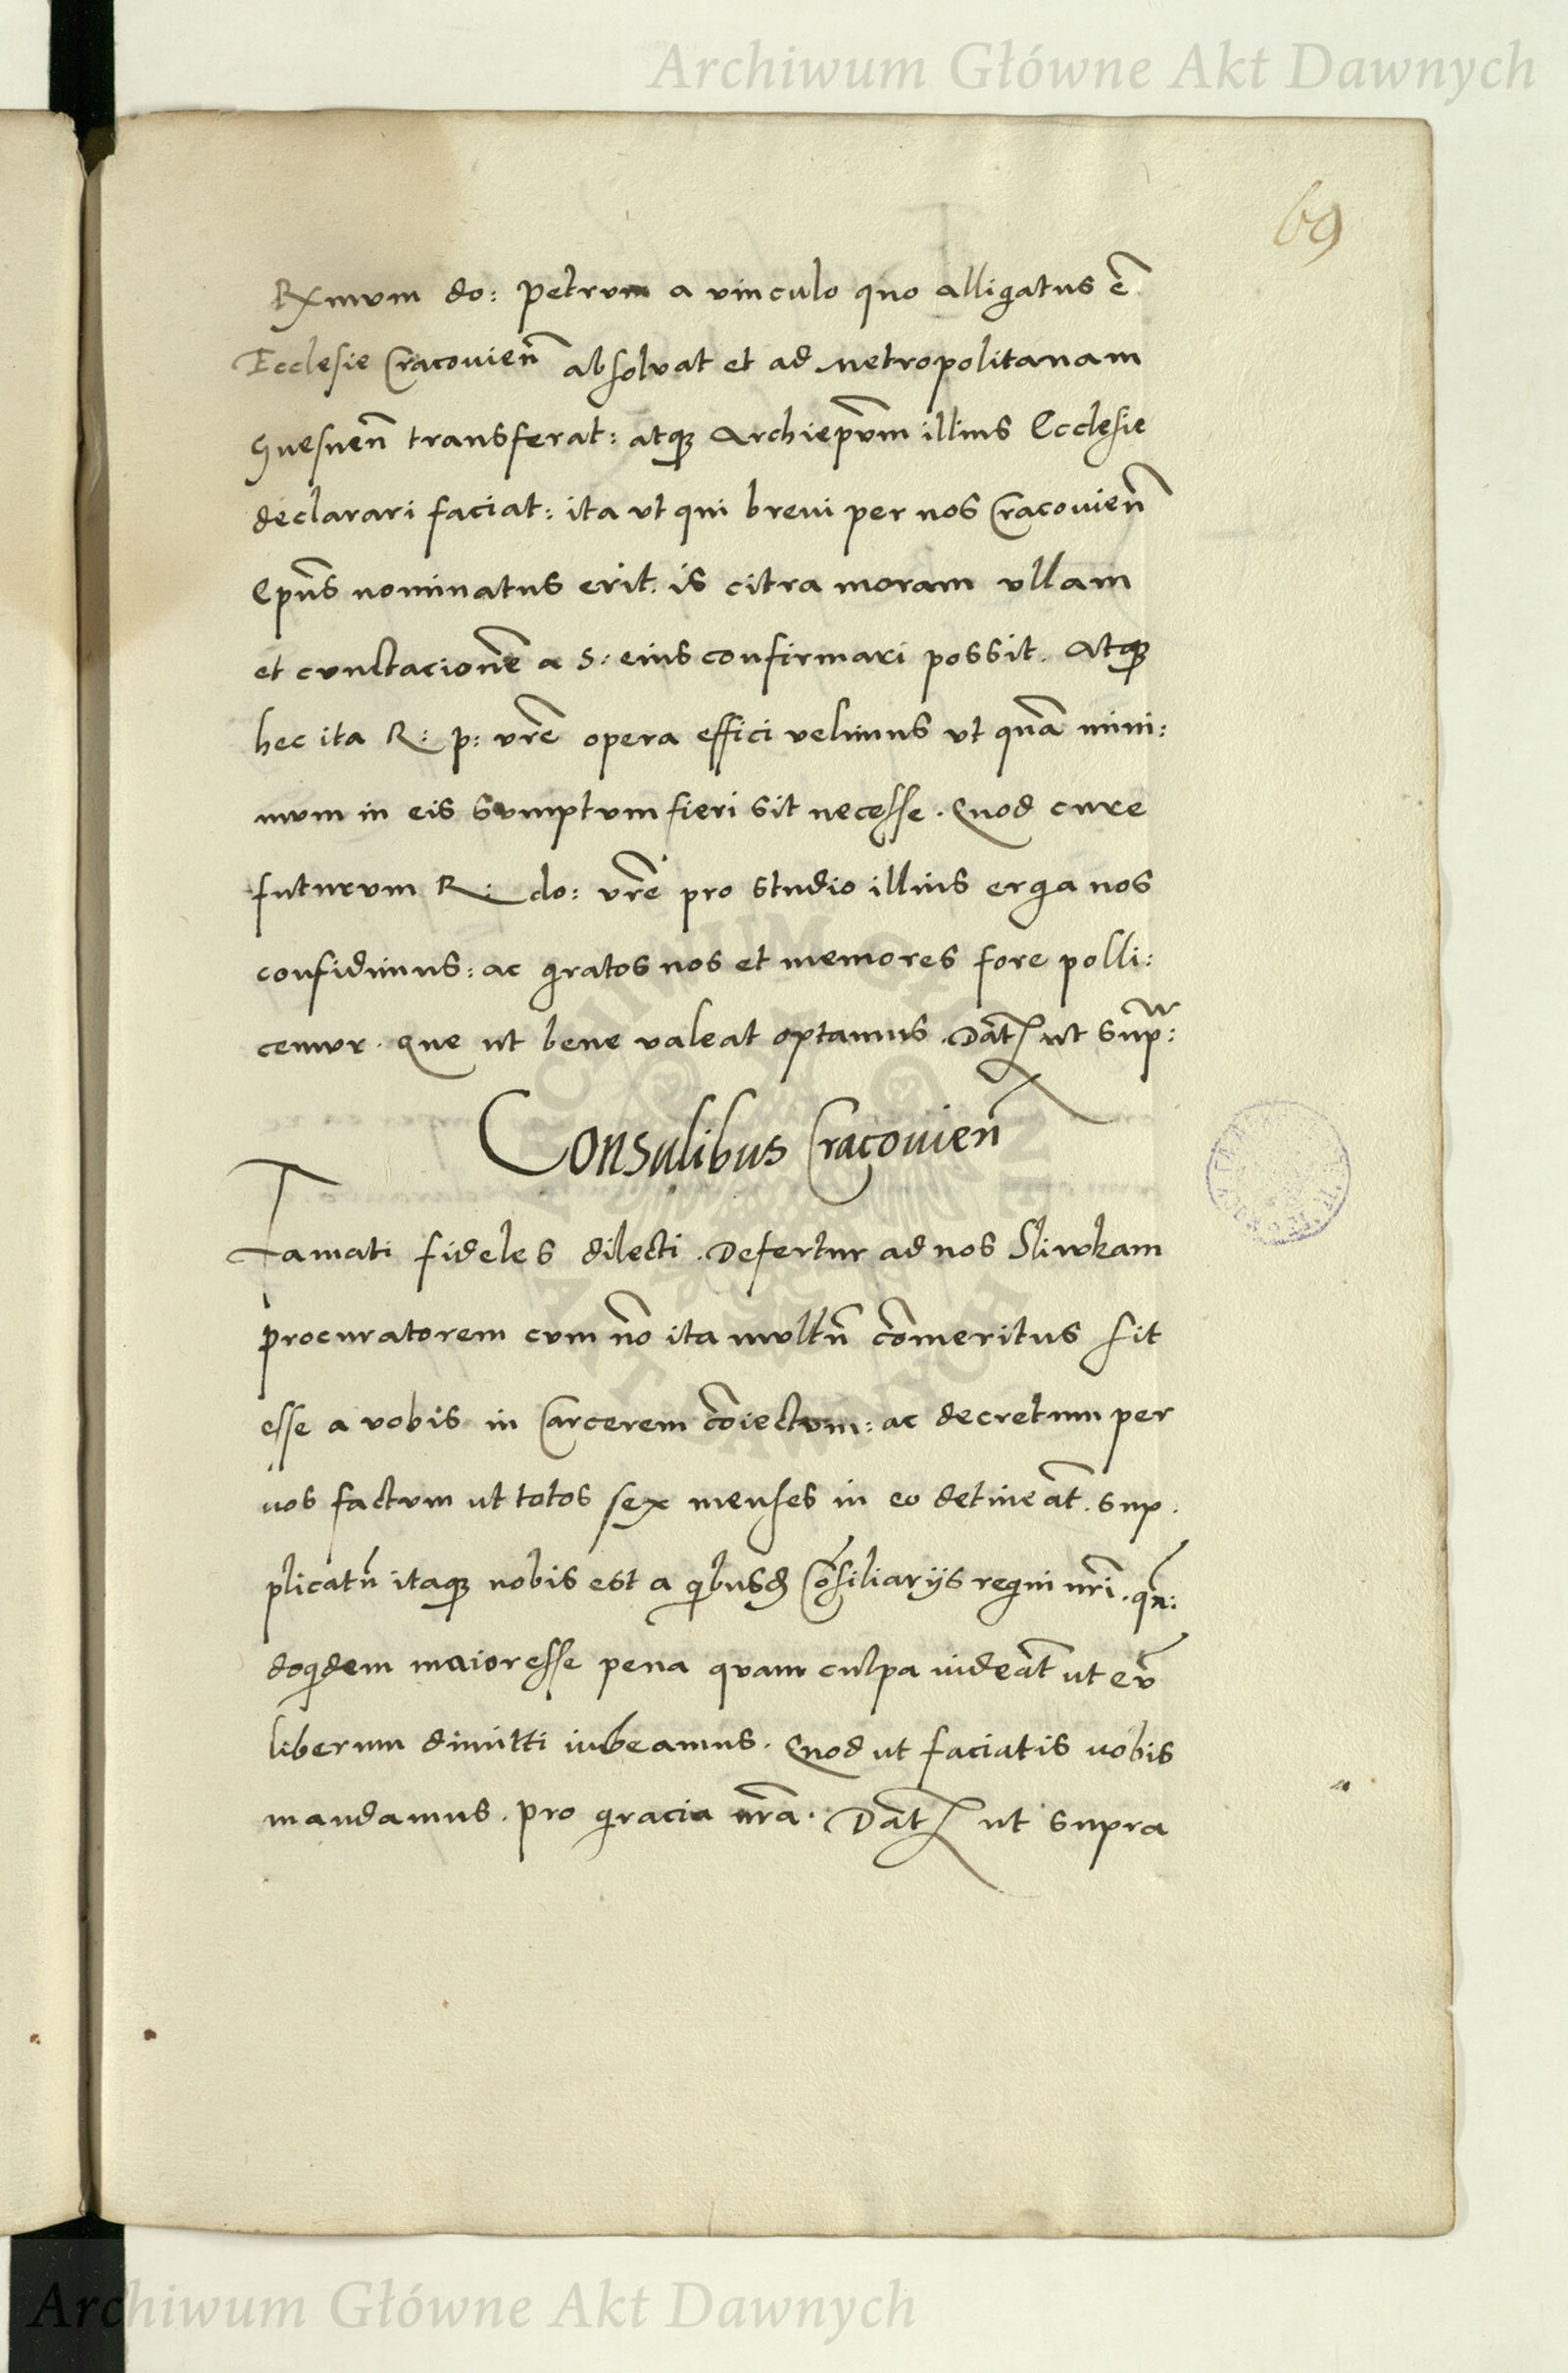 Archiwum Główne Akt Dawnych
69
Rxmum do: Petrum a vinculo quo alligatus ē
Ecclesie Cracovien̄ absolvat et ad Metropolitanam
Gnesnen̄ transferat: atqȝ Archiep̄um illius Ecclesie
declarari faciat: ita ut qui brevi per nos Cracovien̄
Ep̄us nominatus erit. is citra moram ullam
et cunctacionē a S: eius confirmari possit. Atqȝ
hec ita R: p: vr̄e opera effici velimus ut quā mini:
mum in eis sumptum fieri sit necesse. Quod cure
futurum R: do: vr̄e pro studio illius erga nos
confidimus: ac gratos nos et memores fore polli:
cemur. Que ut bene valeat optamus. Dāt ut sup:
Consulibus Cracovien̄
Famati fideles dilecti. Defertur ad nos Sliwkam
procuratorem cum nō ita multū cōmeritus sit
esse a vobis in Carcerem cōiectum: ac decretum per
vos factum ut totos sex menses in eo detineāt. sup.
plicatū itaqȝ nobis est a qibusd Cōsiliarijs regni nr̄i. qn:
doqidem maior esse pena quam culpa videāt ut eū
liberum dimitti iubeamus. Quod ut faciatis vobis
mandamus. pro gracia nr̄a. Dāt ut supra
Archiwum Główne Akt Dawnych